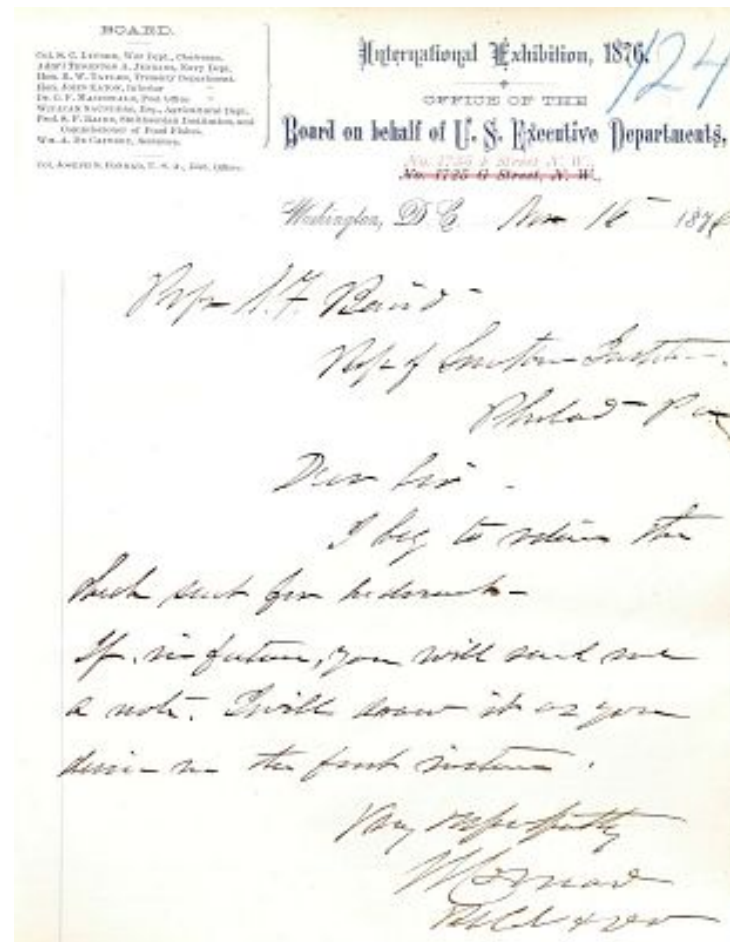 BOARD.
Col. S. C. Lyford, War Dept., Chairman.
Adm'l Thornton A. Jenkins, Navy Dept.
Hon. R. W. Tayler, Treasury Department.
Hon. John Eaton, Interior "
Dr. C. F. Macdonald, Post Office "
William Saunders, Esq., Agricultural Dept.
Prof. S. F. Baird, Smithsonian Institution, and
Commissioner of Food Fishes.
Wm. A. De Caindry, Secretary.
International Exhibition, 1876.
124
OFFICE OF THE
Board on behalf of U. S. Executive Departments,
No. 1725 G Street, N. W.,
Washington, D. C. Nov 16 1876
Prof S. F. Baird
Philad Pa
Dear Sir -
I beg to return the
check sent for
If, in future, you will send me
a note, I will draw it as you
desire in the first instance.
Very Respectfully